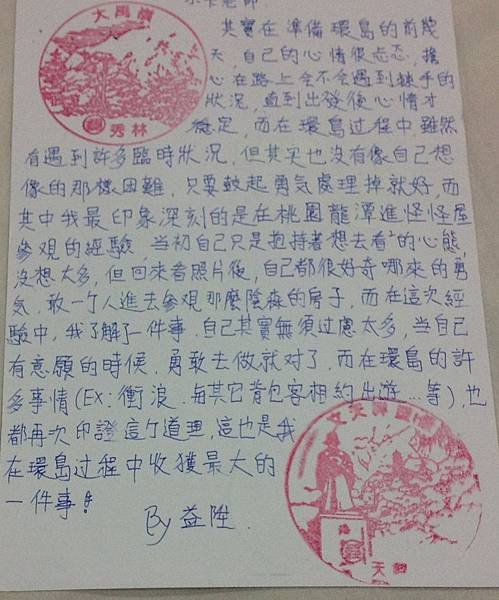 老師
大禹嶺
秀林
其實在準備環島的前幾
天,自己的心情很忐忑,擔
心在路上会不会遇到棘手的
狀況,直到出發後心情才
穩定,而在環島过程中雖然
有遇到許多臨時狀況,但其实也沒有像自己想
像的那樣困難,只要鼓起勇氣處理掉就好,而
其中我最印象深刻的是在桃園龍潭進怪怪屋
參观的經驗,當初自己只是抱持著想去看²的心態,
沒想太多,但回來看照片後,自己都很好奇哪來的勇
気,敢一个人進去參观那麼陰森的房子,而在這次經
驗中,我了解了一件事,自己其實無須过慮太多,當自己
有意願的時候,勇敢去做就对了,而在環島的許
多事情(EX:衝浪.与其它背包客相約出遊...等),也
都再次印證這个道理,這也是我
在環島过程中收獲最大的
一件事!
By 益陞.
文天祥
天祥